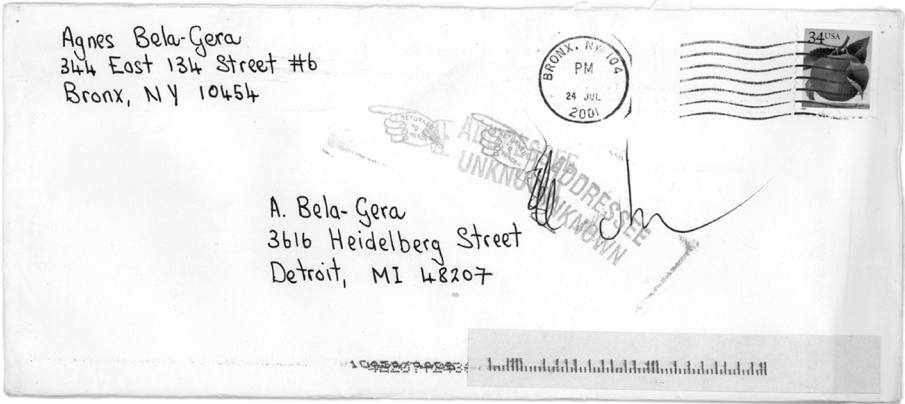 Agnes Bela-Gera
344 East 134 Street #6
Bronx, NY 10454
BRONX, NY 104
PM
24 JUL
2001
34 USA
RETURN
TO
SENDER
ADDRESSEE
UNKNOWN
A. Bela-Gera
3616 Heidelberg Street
Detroit, MI 48207